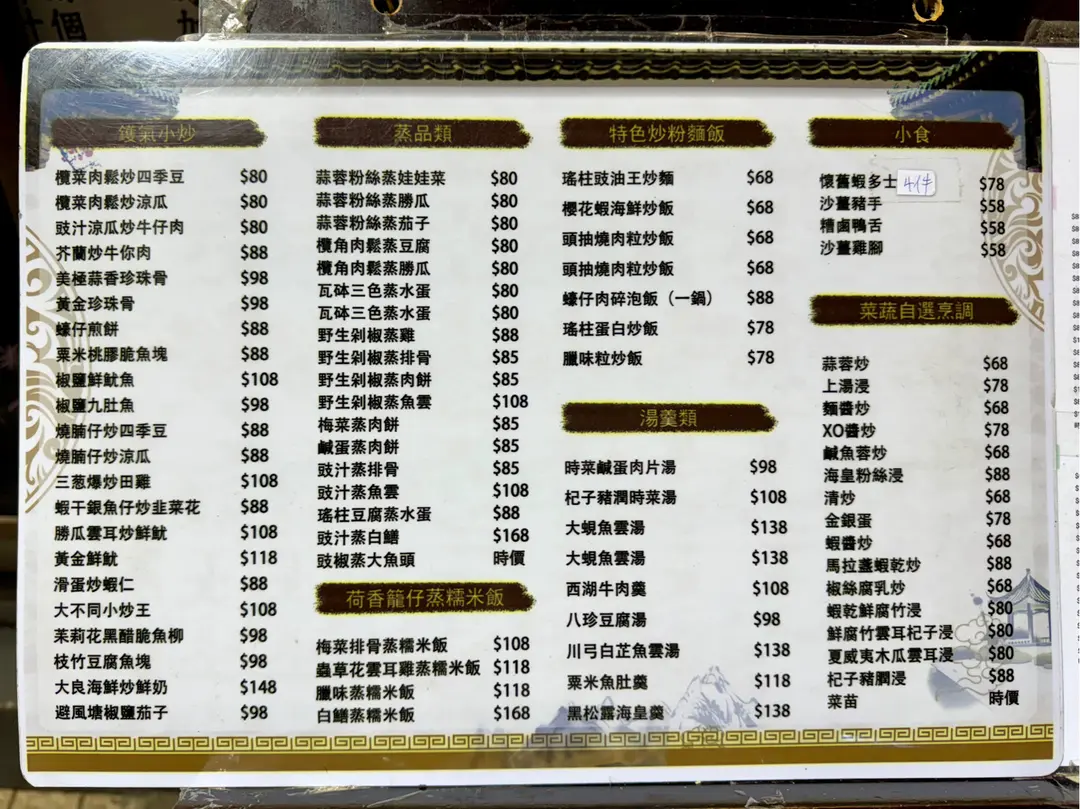 鑊氣小炒
欖菜肉鬆炒四季豆 $80
欖菜肉鬆炒涼瓜 $80
豉汁涼瓜炒牛仔肉 $80
芥蘭炒牛你肉 $88
美極蒜香珍珠骨 $98
黃金珍珠骨 $98
蠔仔煎餅 $88
粟米桃膠脆魚塊 $88
椒鹽鮮魷魚 $108
椒鹽九肚魚 $98
燒腩仔炒四季豆 $88
燒腩仔炒涼瓜 $88
三葱爆炒田雞 $108
蝦干銀魚仔炒韭菜花 $88
勝瓜雲耳炒鮮魷 $108
黃金鮮魷 $118
滑蛋炒蝦仁 $88
大不同小炒王 $108
茉莉花黑醋脆魚柳 $98
枝竹豆腐魚塊 $98
大良海鮮炒鮮奶 $148
避風塘椒鹽茄子 $98
蒸品類
蒜蓉粉絲蒸娃娃菜 $80
蒜蓉粉絲蒸勝瓜 $80
蒜蓉粉絲蒸茄子 $80
欖角肉鬆蒸豆腐 $80
欖角肉鬆蒸勝瓜 $80
瓦砵三色蒸水蛋 $80
瓦砵三色蒸水蛋 $80
野生剁椒蒸雞 $88
野生剁椒蒸排骨 $85
野生剁椒蒸肉餅 $85
野生剁椒蒸魚雲 $108
梅菜蒸肉餅 $85
鹹蛋蒸肉餅 $85
豉汁蒸排骨 $85
豉汁蒸魚雲 $108
瑤柱豆腐蒸水蛋 $88
豉汁蒸白鱔 $168
豉椒蒸大魚頭 時價
荷香籠仔蒸糯米飯
梅菜排骨蒸糯米飯 $108
蟲草花雲耳雞蒸糯米飯 $118
臘味蒸糯米飯 $118
白鱔蒸糯米飯 $168
特色炒粉麵飯
瑤柱豉油王炒麵 $68
櫻花蝦海鮮炒飯 $68
頭抽燒肉粒炒飯 $68
頭抽燒肉粒炒飯 $68
蠔仔肉碎泡飯（一鍋） $88
瑤柱蛋白炒飯 $78
臘味粒炒飯 $78
湯羹類
時菜鹹蛋肉片湯 $98
杞子豬潤時菜湯 $108
大蜆魚雲湯 $138
大蜆魚雲湯 $138
西湖牛肉羹 $108
八珍豆腐湯 $98
川弓白芷魚雲湯 $138
粟米魚肚羹 $118
黑松露海皇羹 $138
小食
懷舊蝦多士 4件 $78
沙薑豬手 $58
糟鹵鴨舌 $58
沙薑雞腳 $58
菜蔬自選烹調
蒜蓉炒 $68
上湯浸 $78
麵醬炒 $68
XO醬炒 $78
鹹魚蓉炒 $68
海皇粉絲浸 $88
清炒 $68
金銀蛋 $78
蝦醬炒 $68
馬拉盞蝦乾炒 $88
椒絲腐乳炒 $68
蝦乾鮮腐竹浸 $80
鮮腐竹雲耳杞子浸 $80
夏威夷木瓜雲耳浸 $80
杞子豬膶浸 $88
菜苗 時價